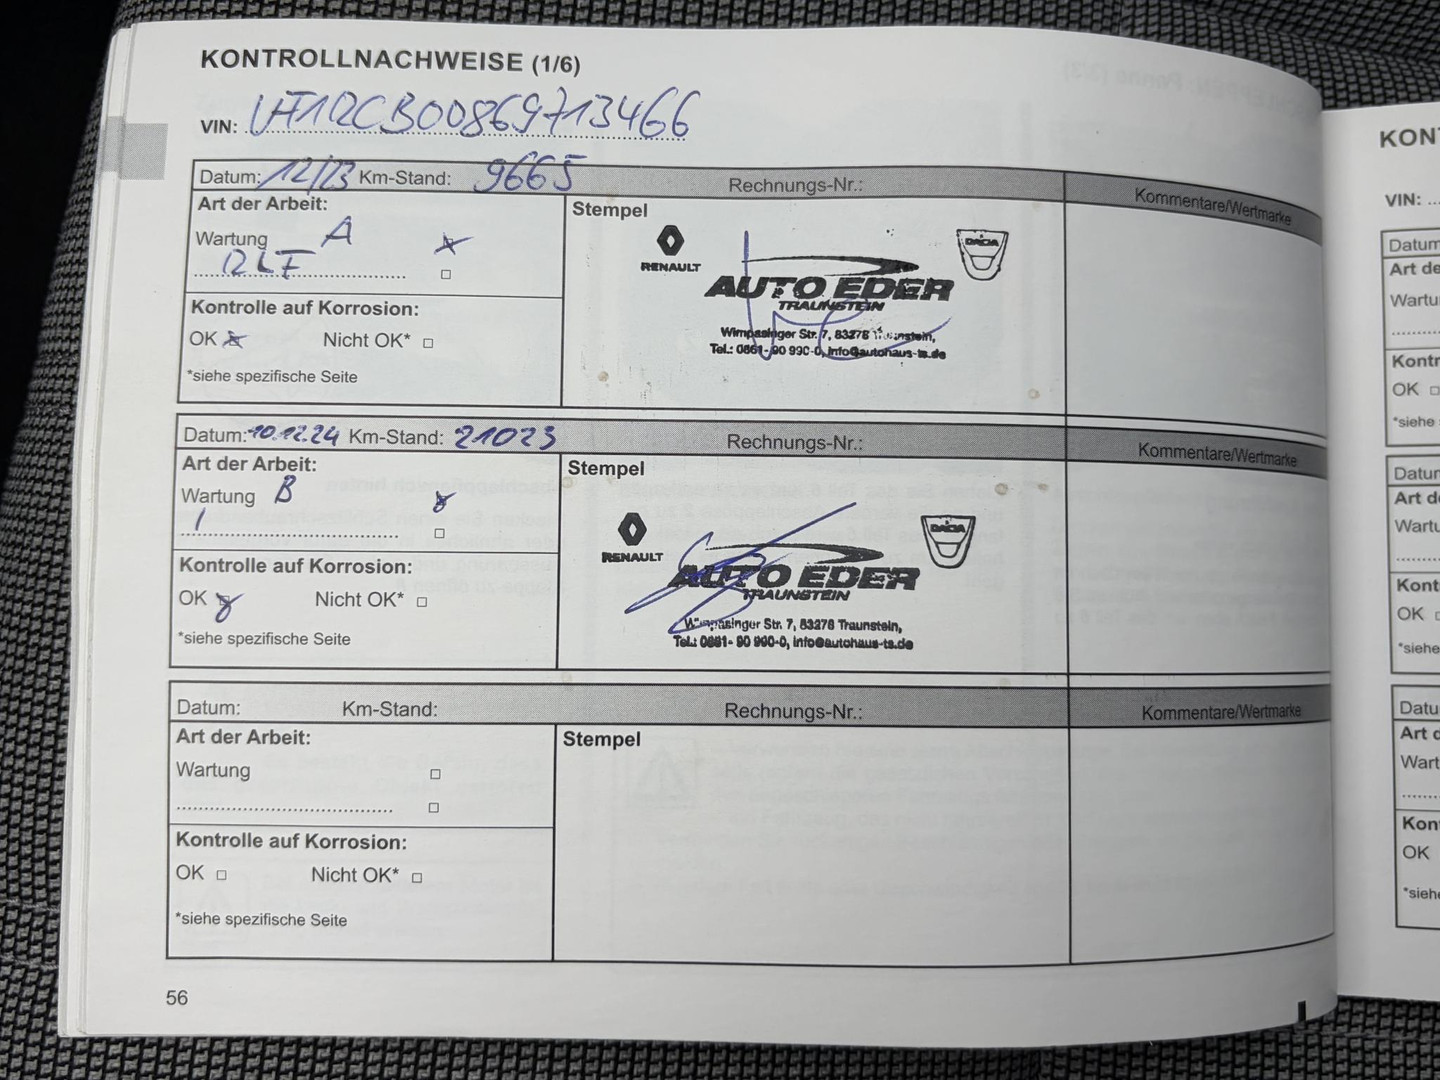 KONTROLLNACHWEISE (1/6)
VIN: VF1RCB00869713466
Datum: 12/23 Km-Stand: 9665 Rechnungs-Nr.: Kommentare/Wertmarke
Art der Arbeit:
Wartung A
RLF
Kontrolle auf Korrosion:
OK Nicht OK*
*siehe spezifische Seite
Stempel
RENAULT
DACIA
AUTO EDER
TRAUNSTEIN
Wimpasinger Str. 7, 83278 Traunstein,
Tel.: 0861- 90 990-0, info@autohaus-ts.de
Datum: 10.12.24 Km-Stand: 21023 Rechnungs-Nr.: Kommentare/Wertmarke
Art der Arbeit:
Wartung B
Kontrolle auf Korrosion:
OK Nicht OK*
*siehe spezifische Seite
Stempel
RENAULT
DACIA
AUTO EDER
TRAUNSTEIN
Wimpasinger Str. 7, 83278 Traunstein,
Tel.: 0861- 90 990-0, info@autohaus-ts.de
Datum: Km-Stand: Rechnungs-Nr.: Kommentare/Wertmarke
Art der Arbeit:
Wartung
Kontrolle auf Korrosion:
OK Nicht OK*
*siehe spezifische Seite
Stempel
56
KONT
VIN: ...
Datum
Art de
Wartu
Kontr
OK
*siehe
Datum
Art de
Wartu
Kont
OK
*siehe
Datu
Art d
Wart
Kon
OK
*sieh